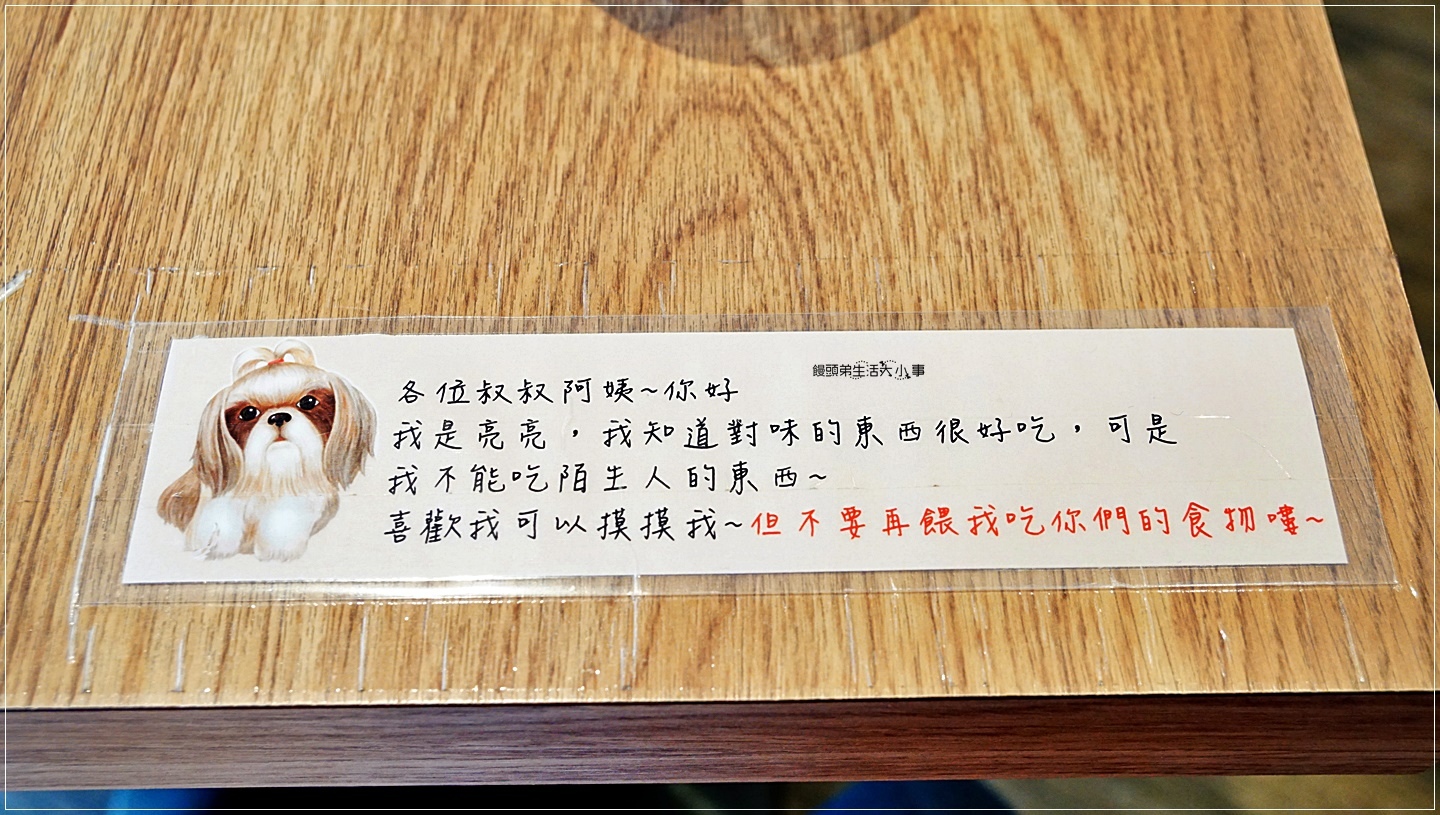 饅頭弟生活大小事
各位叔叔阿姨~你好
我是亮亮，我知道對味的東西很好吃，可是
我不能吃陌生人的東西~
喜歡我可以摸摸我~但不要再餵我吃你們的食物嘍~